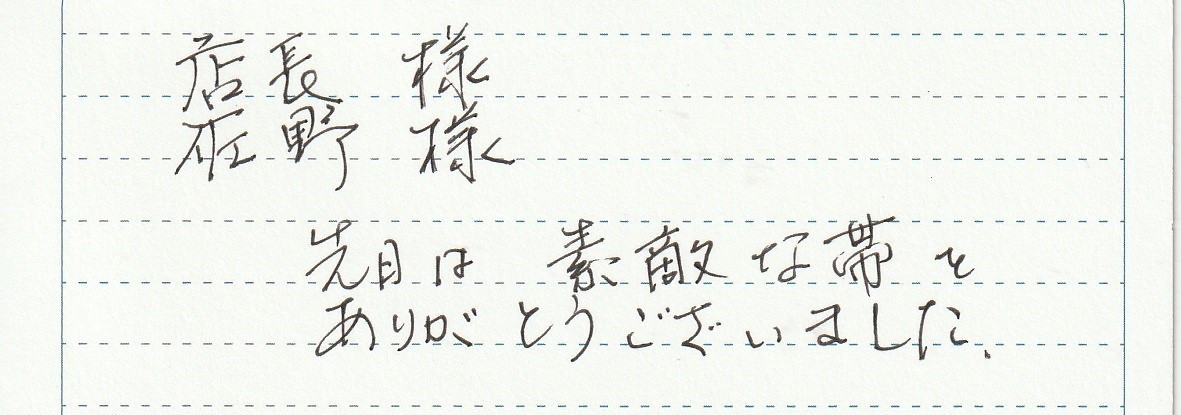 店長 様
佐野 様
先日は 素敵な帯を
ありがとうございました.